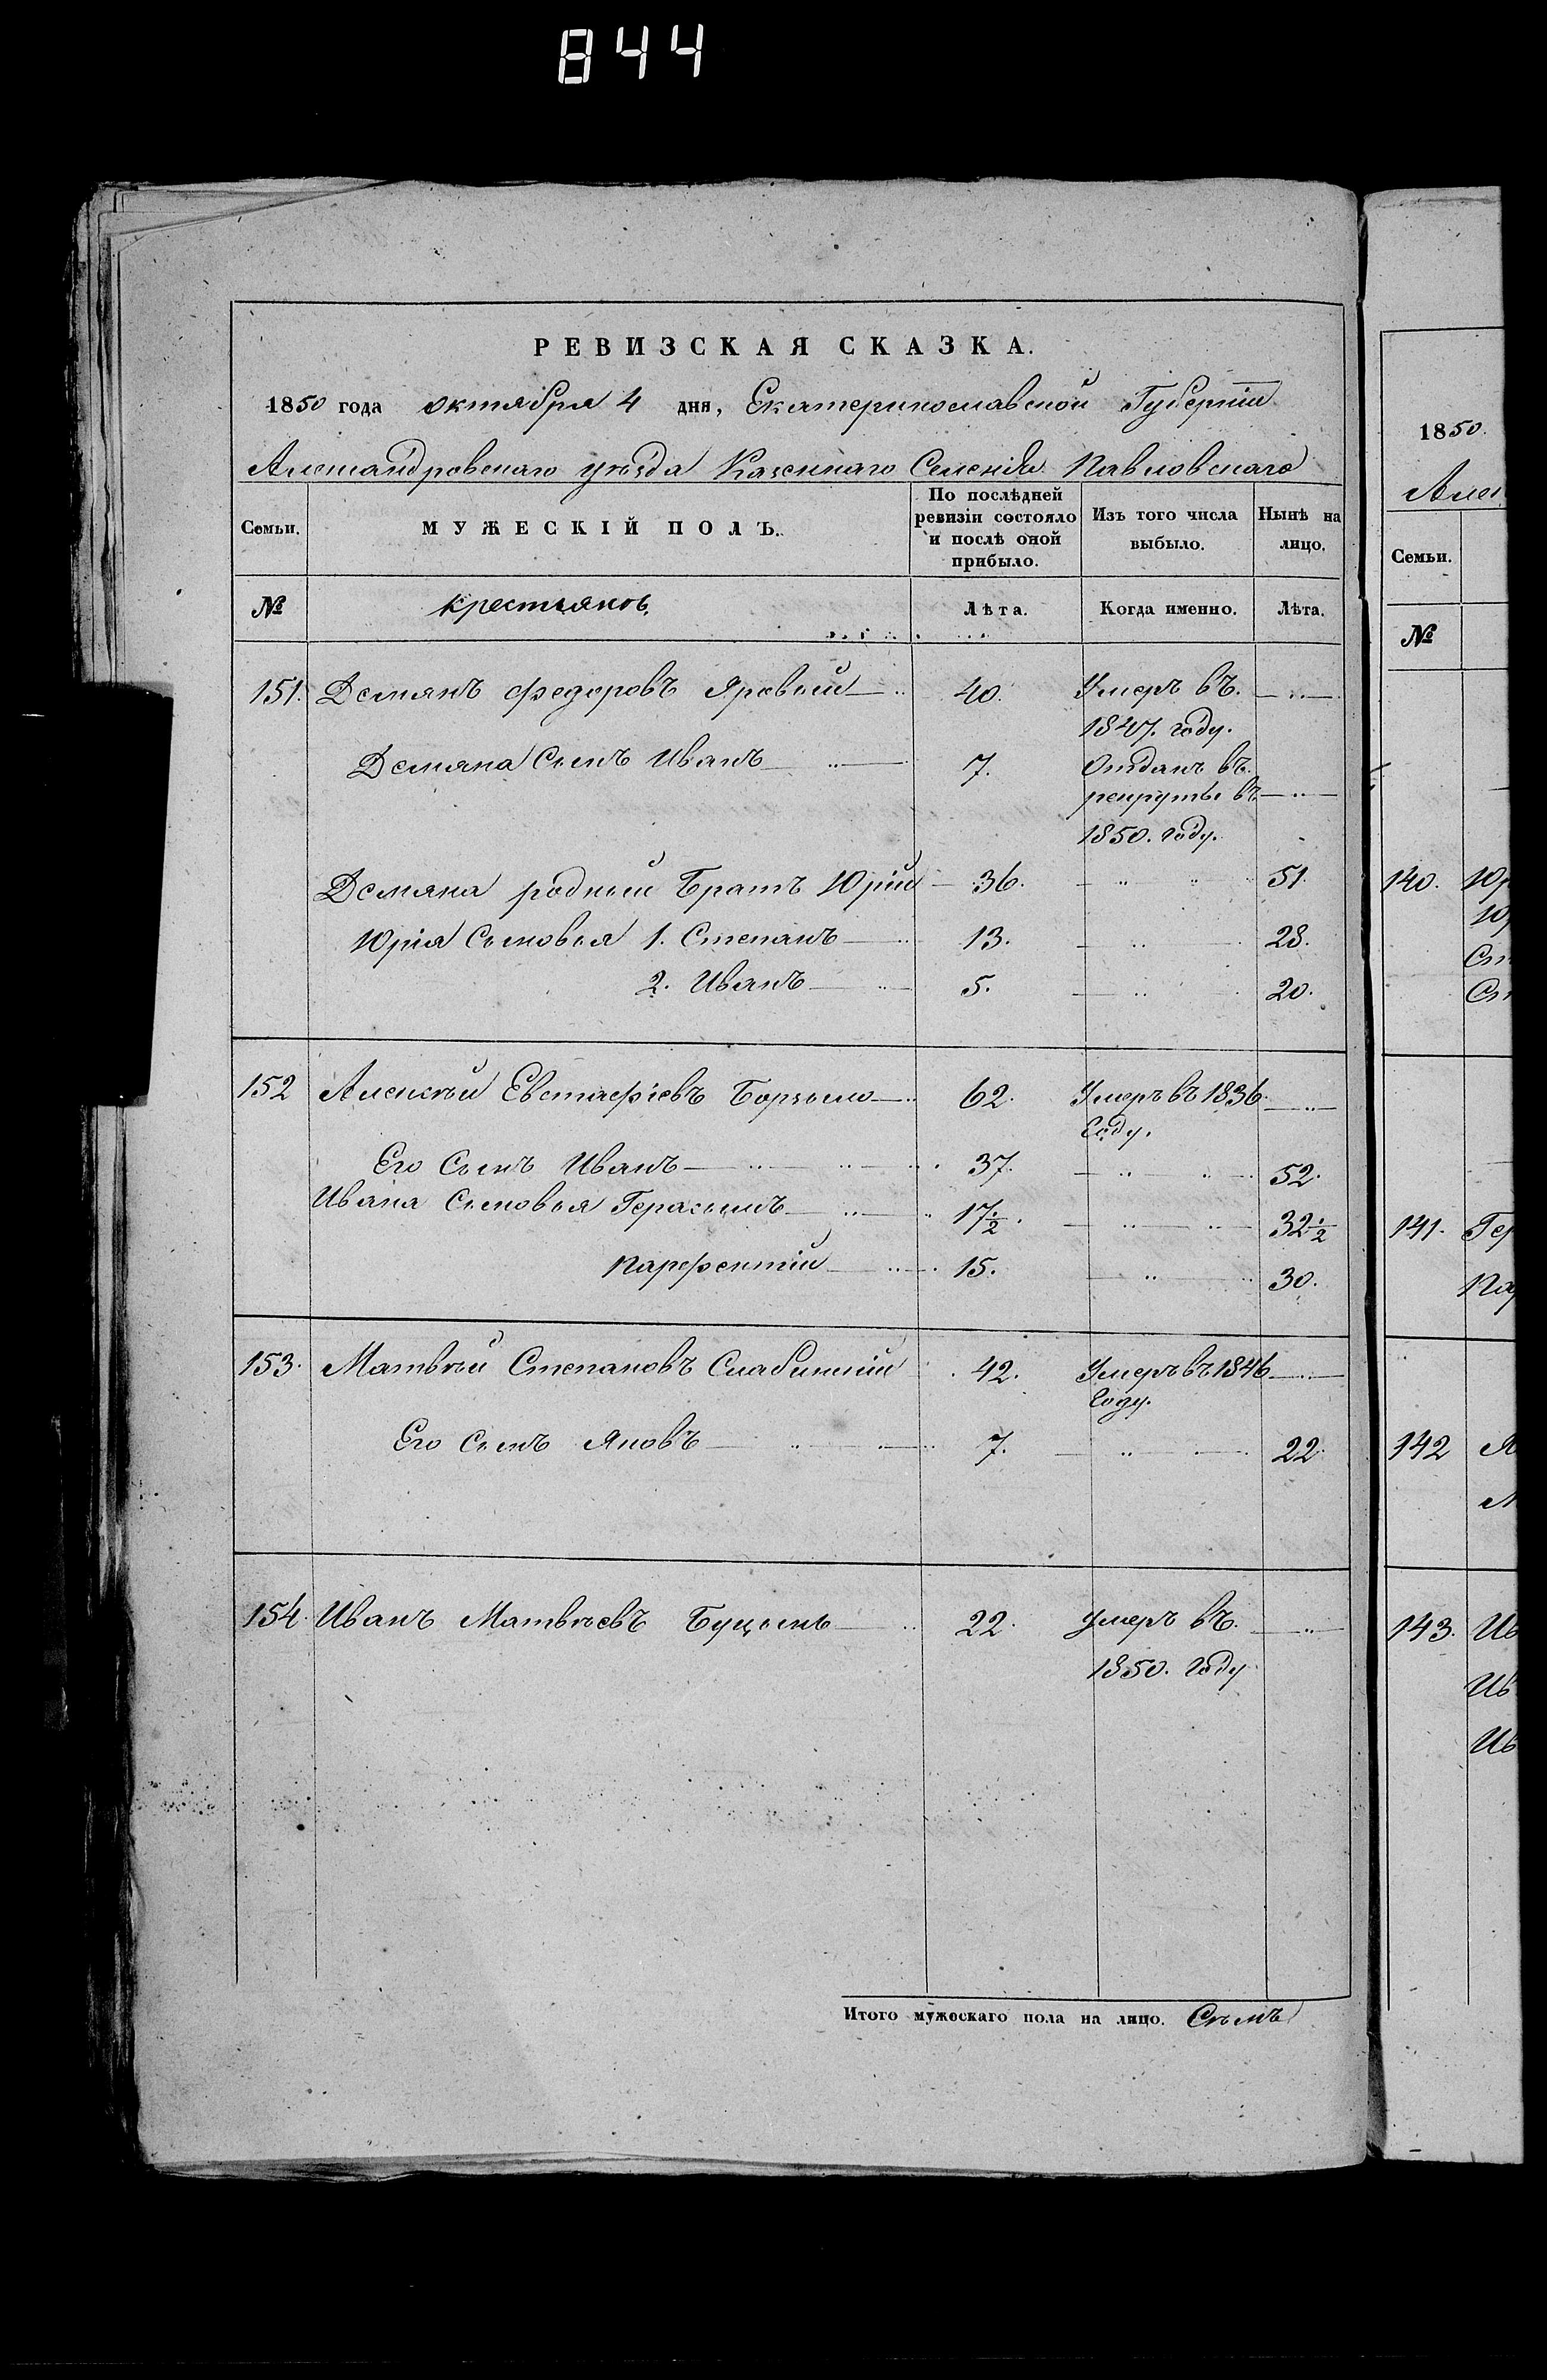 844
РЕВИЗСКАЯ СКАЗКА.
1850 года октября 4 дня, Екатеринославской Губерніи
Александровскаго уѣзда Казеннаго Селенія Павловскаго
Семьи. МУЖЕСКІЙ ПОЛЪ. По послѣдней ревизіи состояло и послѣ оной прибыло. Изъ того числа выбыло. Нынѣ на лицо.
№ крестьянъ. Лѣта. Когда именно. Лѣта.
151. Демянъ Федоровъ Яровый 40. Умеръ въ
1847. году.
Демяна Сынъ Иванъ 7. Отданъ въ
рекруты въ
1850. году.
Демяна родный Братъ Юрій 36. 51.
Юрія Сыновья 1. Степанъ 13. 28.
2. Иванъ 5. 20.
152 Алексѣй Евстафіевъ 62. Умеръ въ 1836
Году.
Его Сынъ Иванъ 37. 52.
Ивана Сыновья Герасимъ 17½. 32½
Парфентій 15. 30.
153. Матвѣй Степановъ Слабинскій 42. Умеръ въ 1846
Году.
Его Сынъ Яковъ 7. 22.
154. Иванъ Матвѣевъ Буцынь 22. Умеръ въ
1850. Году
Итого мужескаго пола на лицо. Сѣмь
1850.
Алек
Семьи.
№
140. Юр
Юр
Ст
Ст
141. Гер
Пар
142 Я
М
143. Ив
Ив
Ив